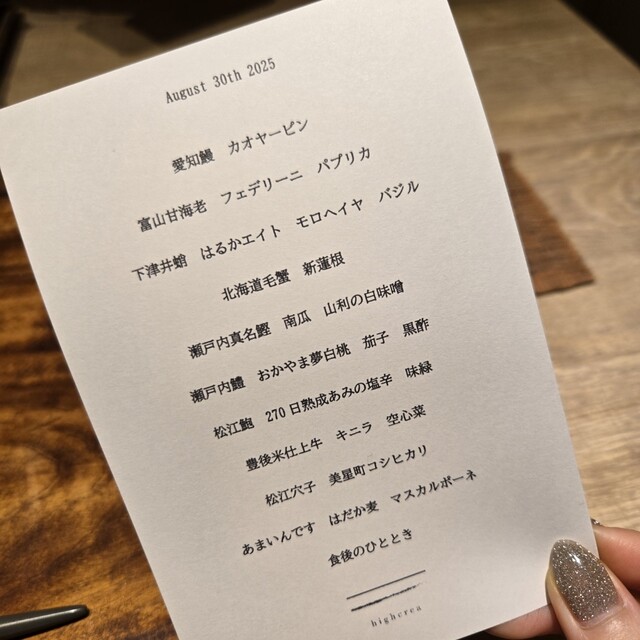 August 30th 2025
愛知鰻 カオヤーピン
富山甘海老 フェデリーニ パプリカ
下津井蛸 はるかエイト モロヘイヤ バジル
北海道毛蟹 新蓮根
瀬戸内真名鰹 南瓜 山利の白味噌
瀬戸内鱧 おかやま夢白桃 茄子 黒酢
松江鮑 270日熟成あみの塩辛 味緑
豊後米仕上牛 キニラ 空心菜
松江穴子 美星町コシヒカリ
あまいんです はだか麦 マスカルポーネ
食後のひととき
highcrea